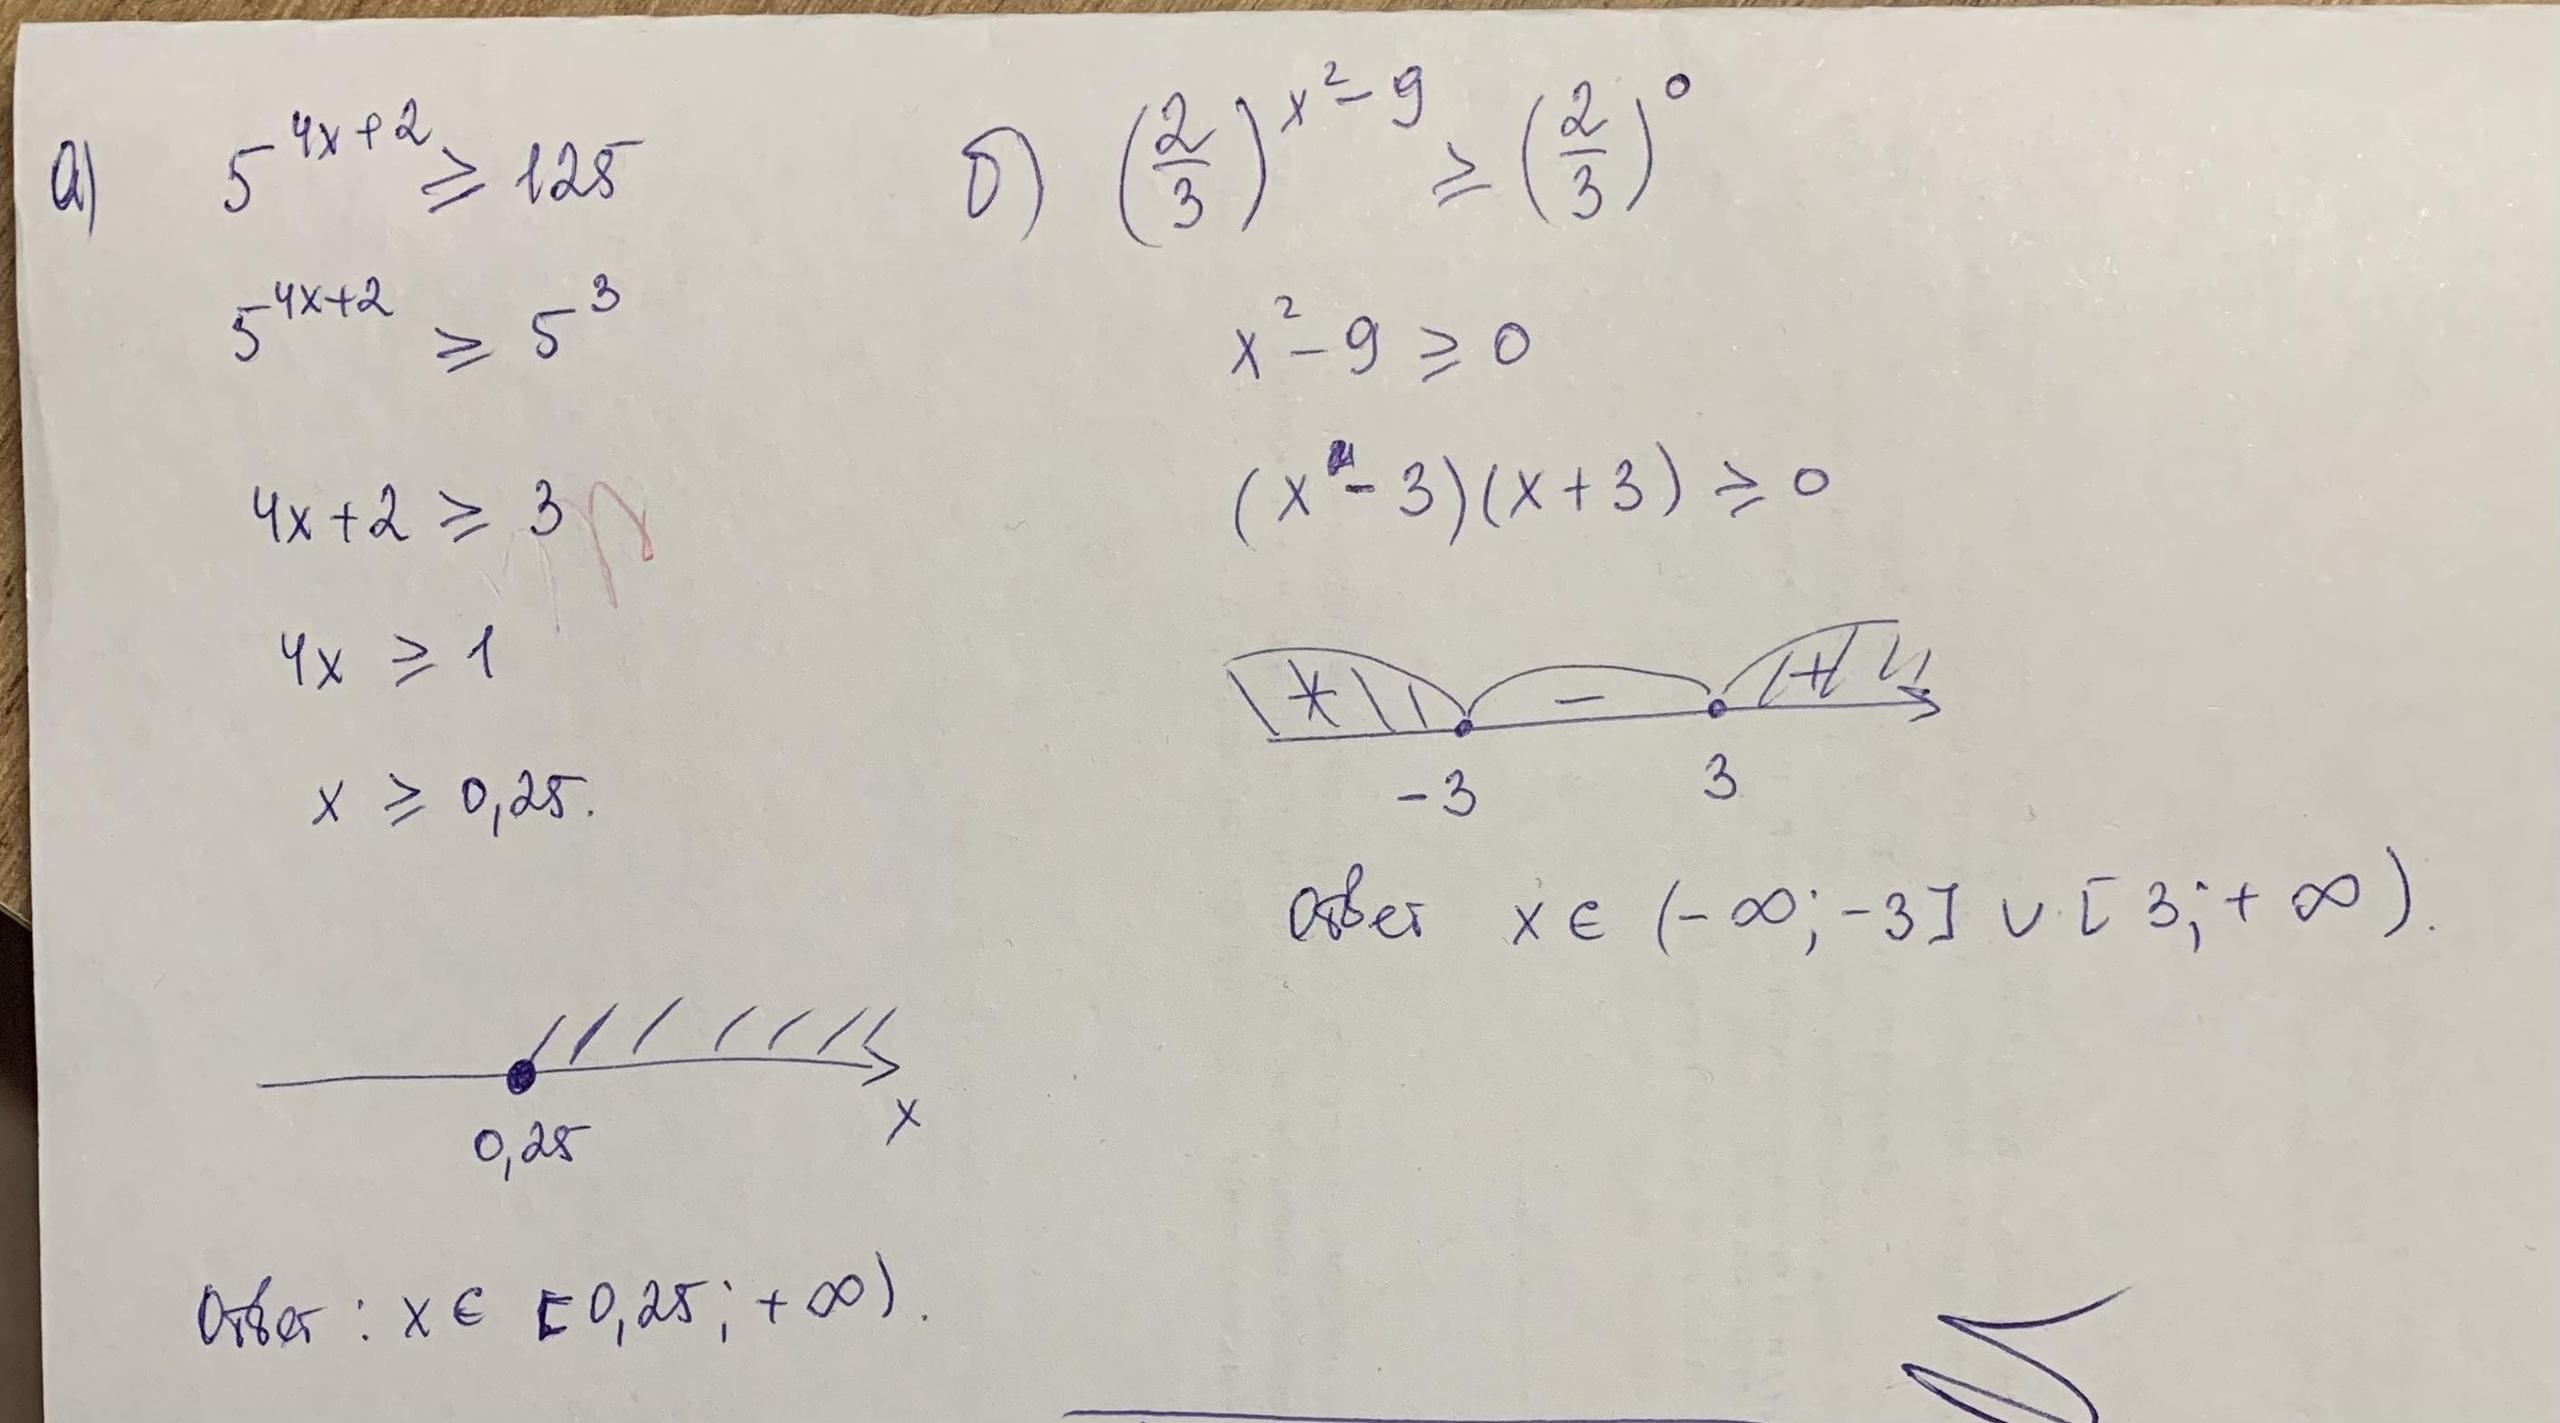 а) 5^{4x+2} ⩾ 125
5^{4x+2} ⩾ 5^3
4x+2 ⩾ 3
4x ⩾ 1
x ⩾ 0,25.
0,25 x
Ответ: x ∈ [0,25; +∞).
б) (2/3)^{x²-9} ⩾ (2/3)^0
x² - 9 ⩾ 0
(x - 3)(x + 3) ⩾ 0
+ - +
-3 3
Ответ x ∈ (-∞; -3] ∪ [3; +∞).